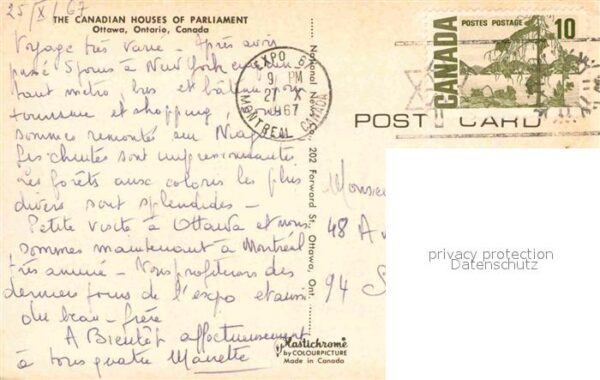 25/X/67
THE CANADIAN HOUSES OF PARLIAMENT
Ottawa, Ontario, Canada
Voyage très varié - Après avoir
passé 5 jours à New York
métro, bus et bateau pour
tourisme et shopping, nous
sommes remonté sur Niag
Les chutes sont impressionnantes
Les forêts aux coloris les plus
divers sont splendides -
Petite visite à Ottawa et nous
sommes maintenant à Montréal
très animé - Nous profiterons des
derniers jours de l'expo et aussi
du beau-frère
A Bientôt affectueusement
à tous quatre Mariette
National News Co. 202 Forward St. Ottawa, Ont.
Plastichrome
by COLOURPICTURE
Made in Canada
EXPO 67
9 PM
27 X
1967
MONTREAL CANADA
POSTES POSTAGE
10
CANADA
POST CARD
Monsieu
48 A
94 S
privacy protection
Datenschutz